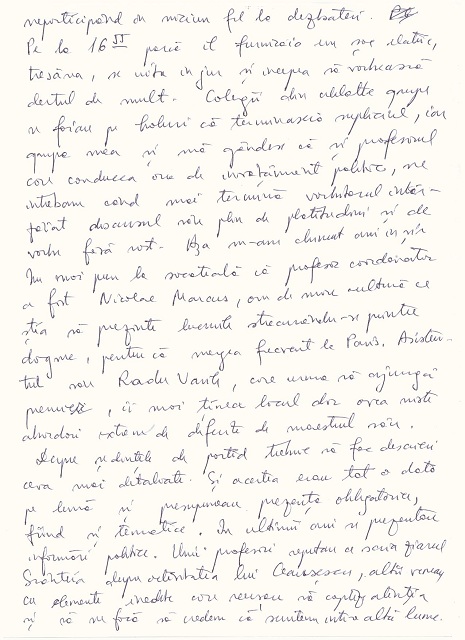 neparticipând în niciun fel la dezbateri.
Pe la 16 15 parcă îl furnica un soc electric,
tresărea, se uita în jur și începea să vorbească
destul de mult. Colegii din celelalte grupe
se foiau pe holuri că terminaseră supliciul, iar
grupa mea și mă gândesc că și profesorul
care conducea ora de învățământ politic, ne
întrebam când mai termină vorbitorul
discursul său plin de platitudini și de
vorbe fără rost. Așa m-am chinuit ani în șir.
Nu mai pun la socoteală că profesor coordonator
a fost Nicolae Marcus, om de mare cultură ce
știa să prezinte lucrurile strecurându-se printre
dogme, pentru că mergea frecvent la Paris. Asisten-
tul său Radu Vasile, care urma să ajungă
premier, îi mai ținea locul dar avea niște
abordări extrem de diferite de maestrul său.
Despre ședințele de partid trebuie să fac descrieri
ceva mai detaliate. Și acestea erau tot o dată
pe lună și presupuneau prezența obligatorie,
fiind și tematice. În ultimii ani se prezentau
informări politice. Unii profesori repetau ce scria ziarul
Scânteia despre activitatea lui Ceaușescu, alții veneau
cu elemente inedite care reușeau să capteze atenția
și să ne facă să credem că suntem într-o altă lume.